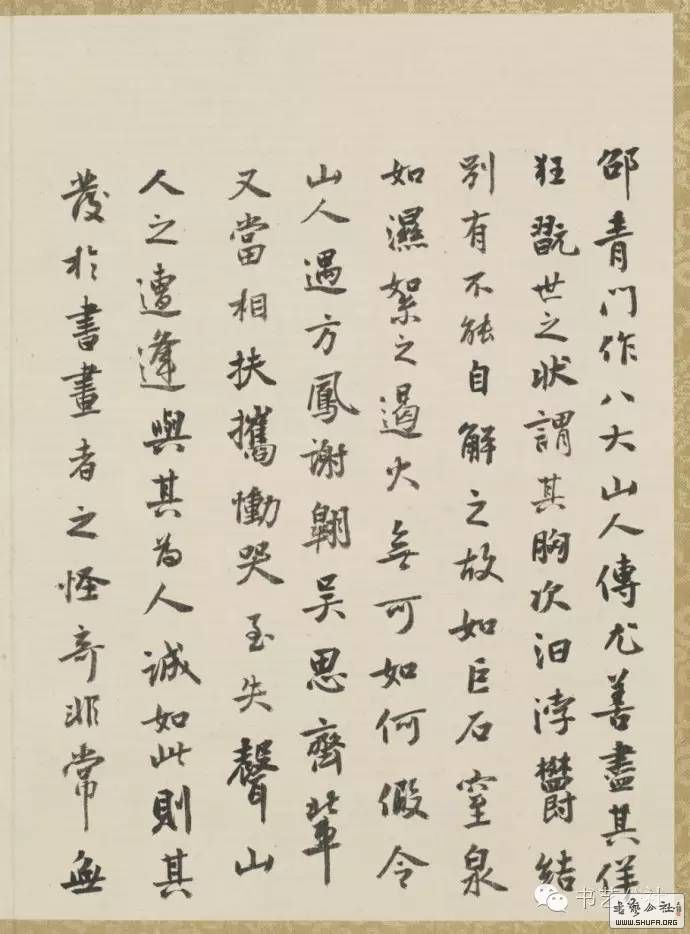 邵青門作八大山人傳尤善盡其佯
狂翫世之狀謂其胸次汩浡鬱結
別有不能自解之故如巨石窒泉
如濕絮之遏火無可如何假令
山人遇方鳳謝翱吳思齊輩
又當相扶攜慟哭至失聲山
人之遭逢與其為人誠如此則其
發於書畫者之怪奇非常無
书艺公社
书艺公社
WWW.SHUFA.ORG